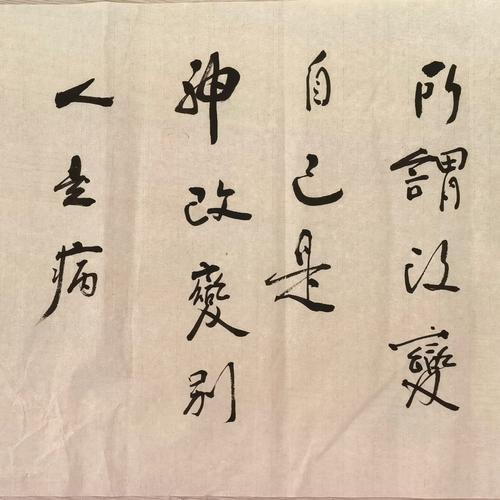 所謂改變
自己是
神改變別
人是病